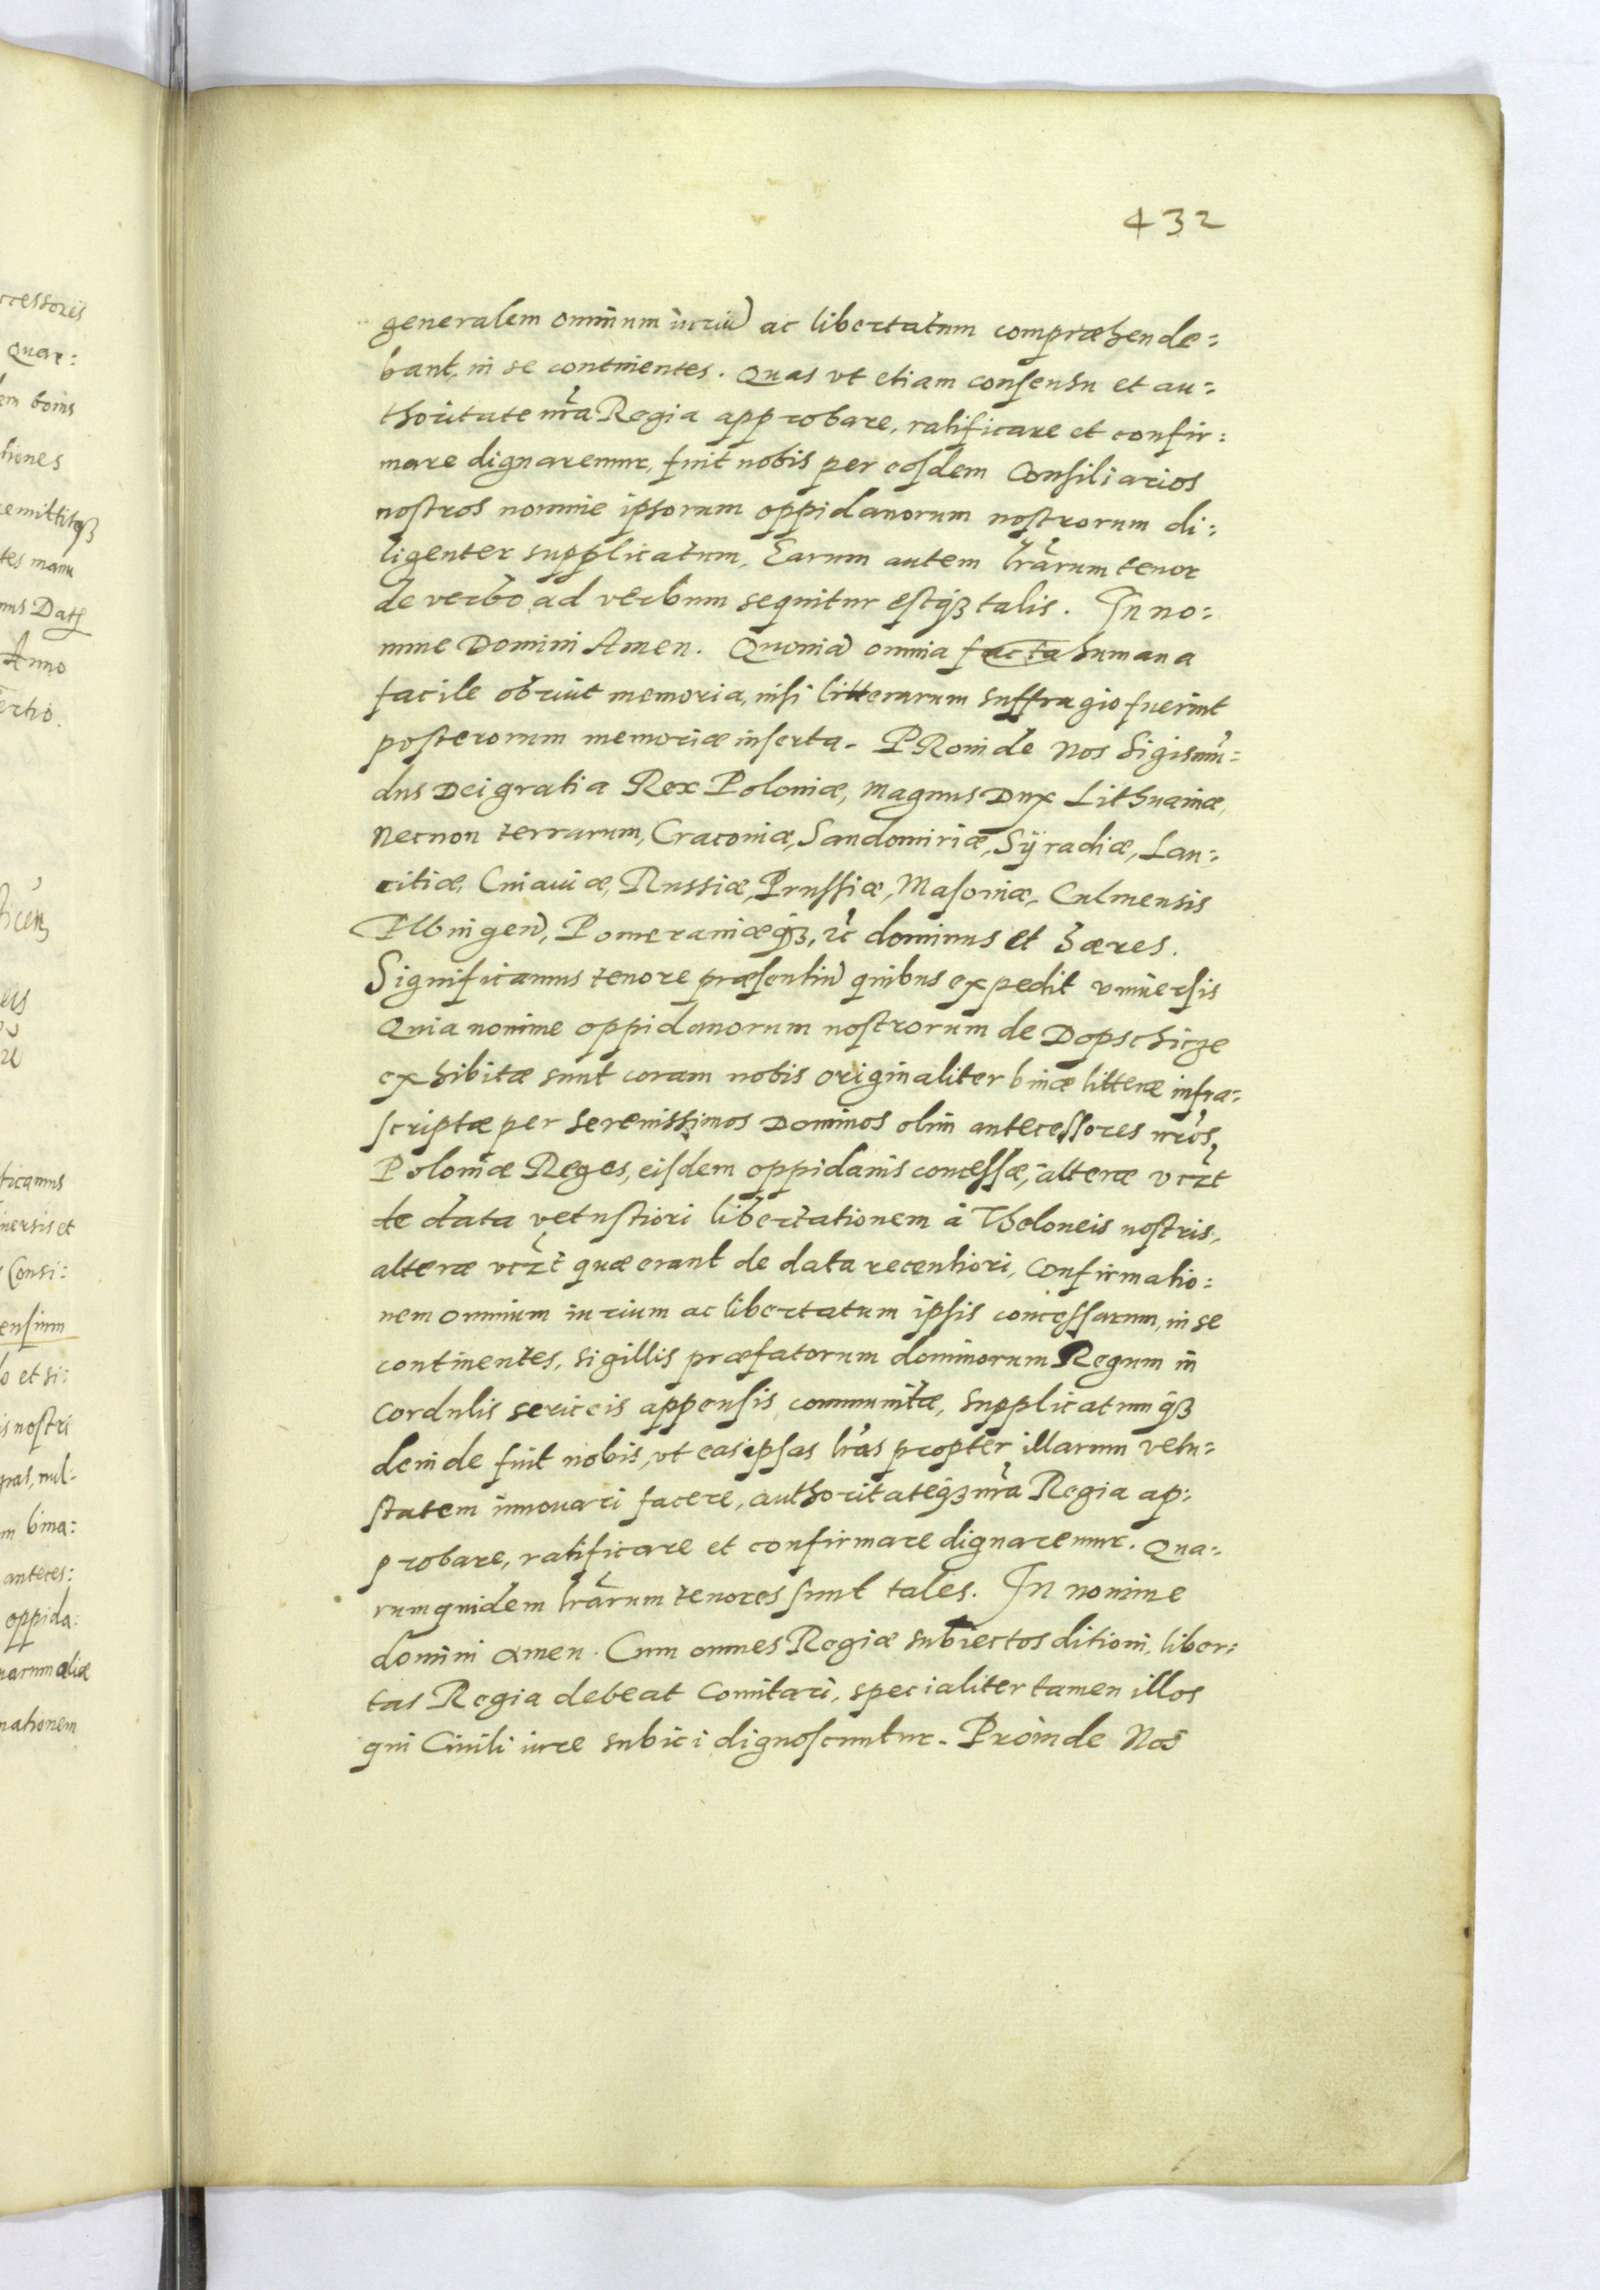 432
generalem omnium iuriū ac libertatum compræhende=
bant, in se continentes. Quas vt etiam consensu et au=
thoritate nr̃a Regia approbare, ratificare et confir=
mare dignaremur, fuit nobis per eosdem Consiliarios
nostros nomine ipsorum oppidanorum nostrorum di=
ligenter supplicatum, Earum autem lr̃arum tenor
de verbo ad verbum sequitur estq3 talis. In no=
mine Domini Amen. Quoniā omnia facta humana
facile obruit memoria, nisi litterarum suffragio fuerint
posterorum memoriæ inserta. PRoinde Nos Sigismū=
dus Dei gratia Rex Poloniæ, Magnus Dux Lithuaniæ,
Necnon terrarum, Cracoviæ, Sandomiriæ, Sÿradiæ, Lan=
citiæ, Cuiauiæ, Russiæ, Prussiæ, Masoviæ, Culmensis
Elbingeñ, Pomeraniæq3, &c dominus et hæres.
Significamus tenore præsentiū quibus expedit vniuersis
Quia nomine oppidanorum nostrorum de Dopschicze
exhibitæ sunt coram nobis originaliter binæ litteræ infra=
scriptæ per serenissimos Dominos olim antecessores nr̃os,
Poloniæ Reges, eisdem oppidanis concessæ, alteræ vczt
de data vetustiori libertationem à Theloneis nostris,
alteræ vczt quæ erant de data recentiori, Confirmatio=
nem omnium iurium ac libertatum ipsis concessarum, in se
continentes, sigillis præfatorum dominorum Regum in
Cordulis sericeis appensis communitæ, supplicatumq3
deinde fuit nobis, vt eas ipsas lr̃as propter illarum vetu=
statem innouari facere, authoritateq3 nr̃a Regia ap=
probare, ratificare et confirmare dignaremur. Qua=
rumquidem lr̃arum tenores sunt tales. In nomine
domini amen. Cum omnes Regiæ subiectos ditioni, liber=
tas Regia debeat Comitari, specialiter tamen illos
qui Ciuili iure subici dignoscuntur. Proinde Nos